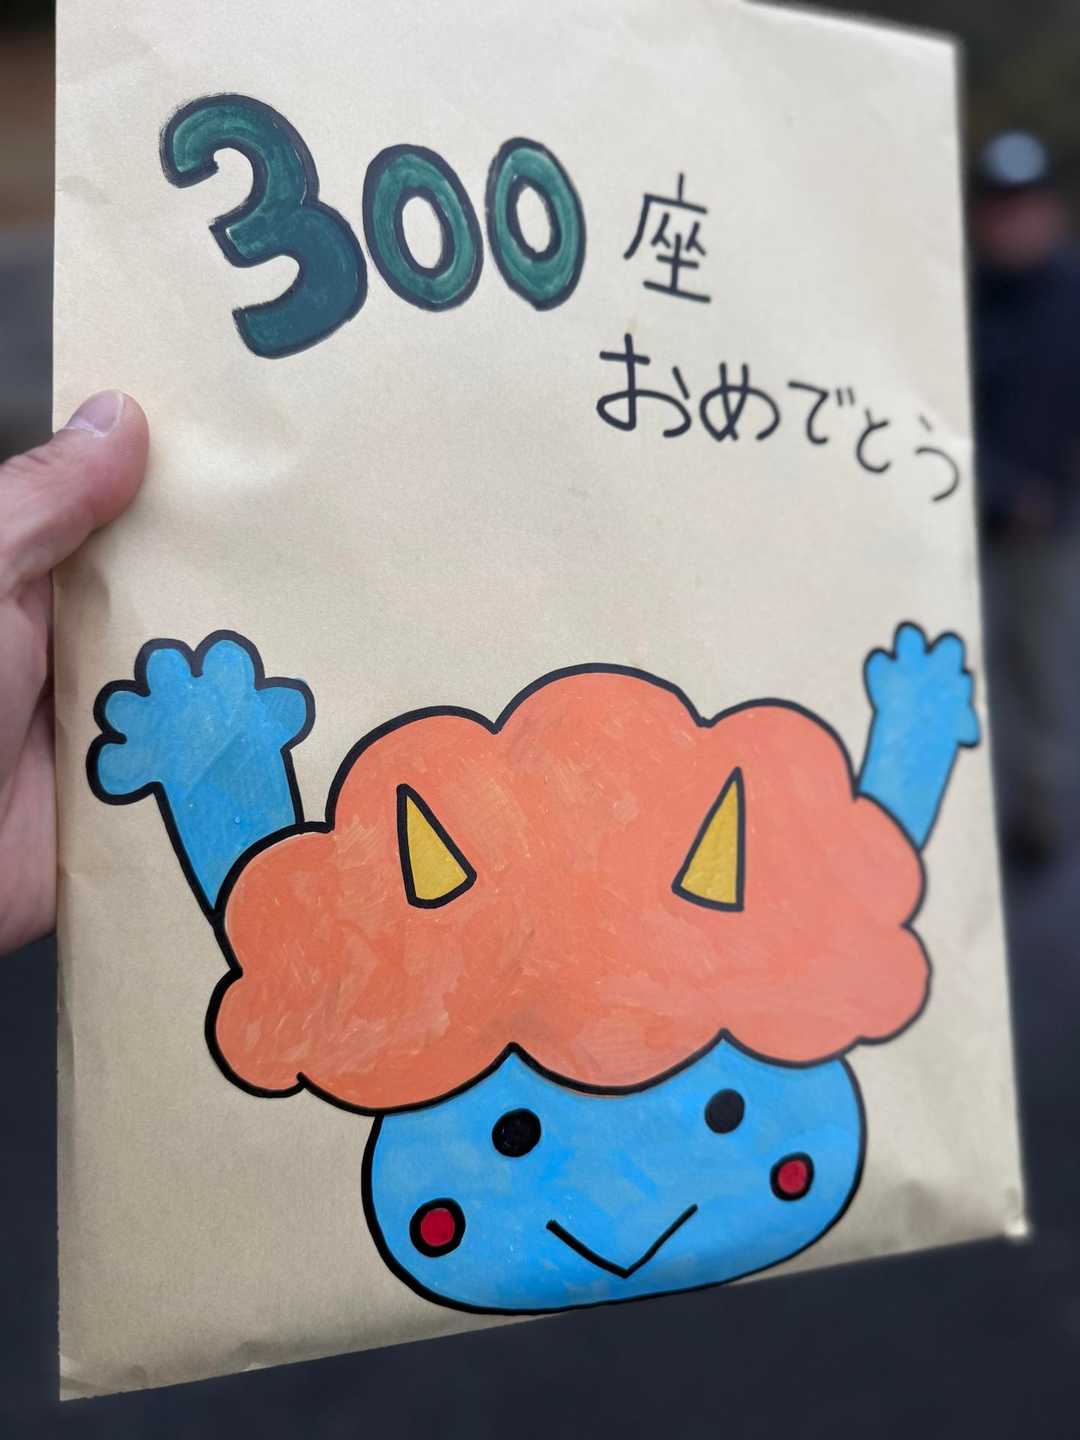 300座
おめでとう